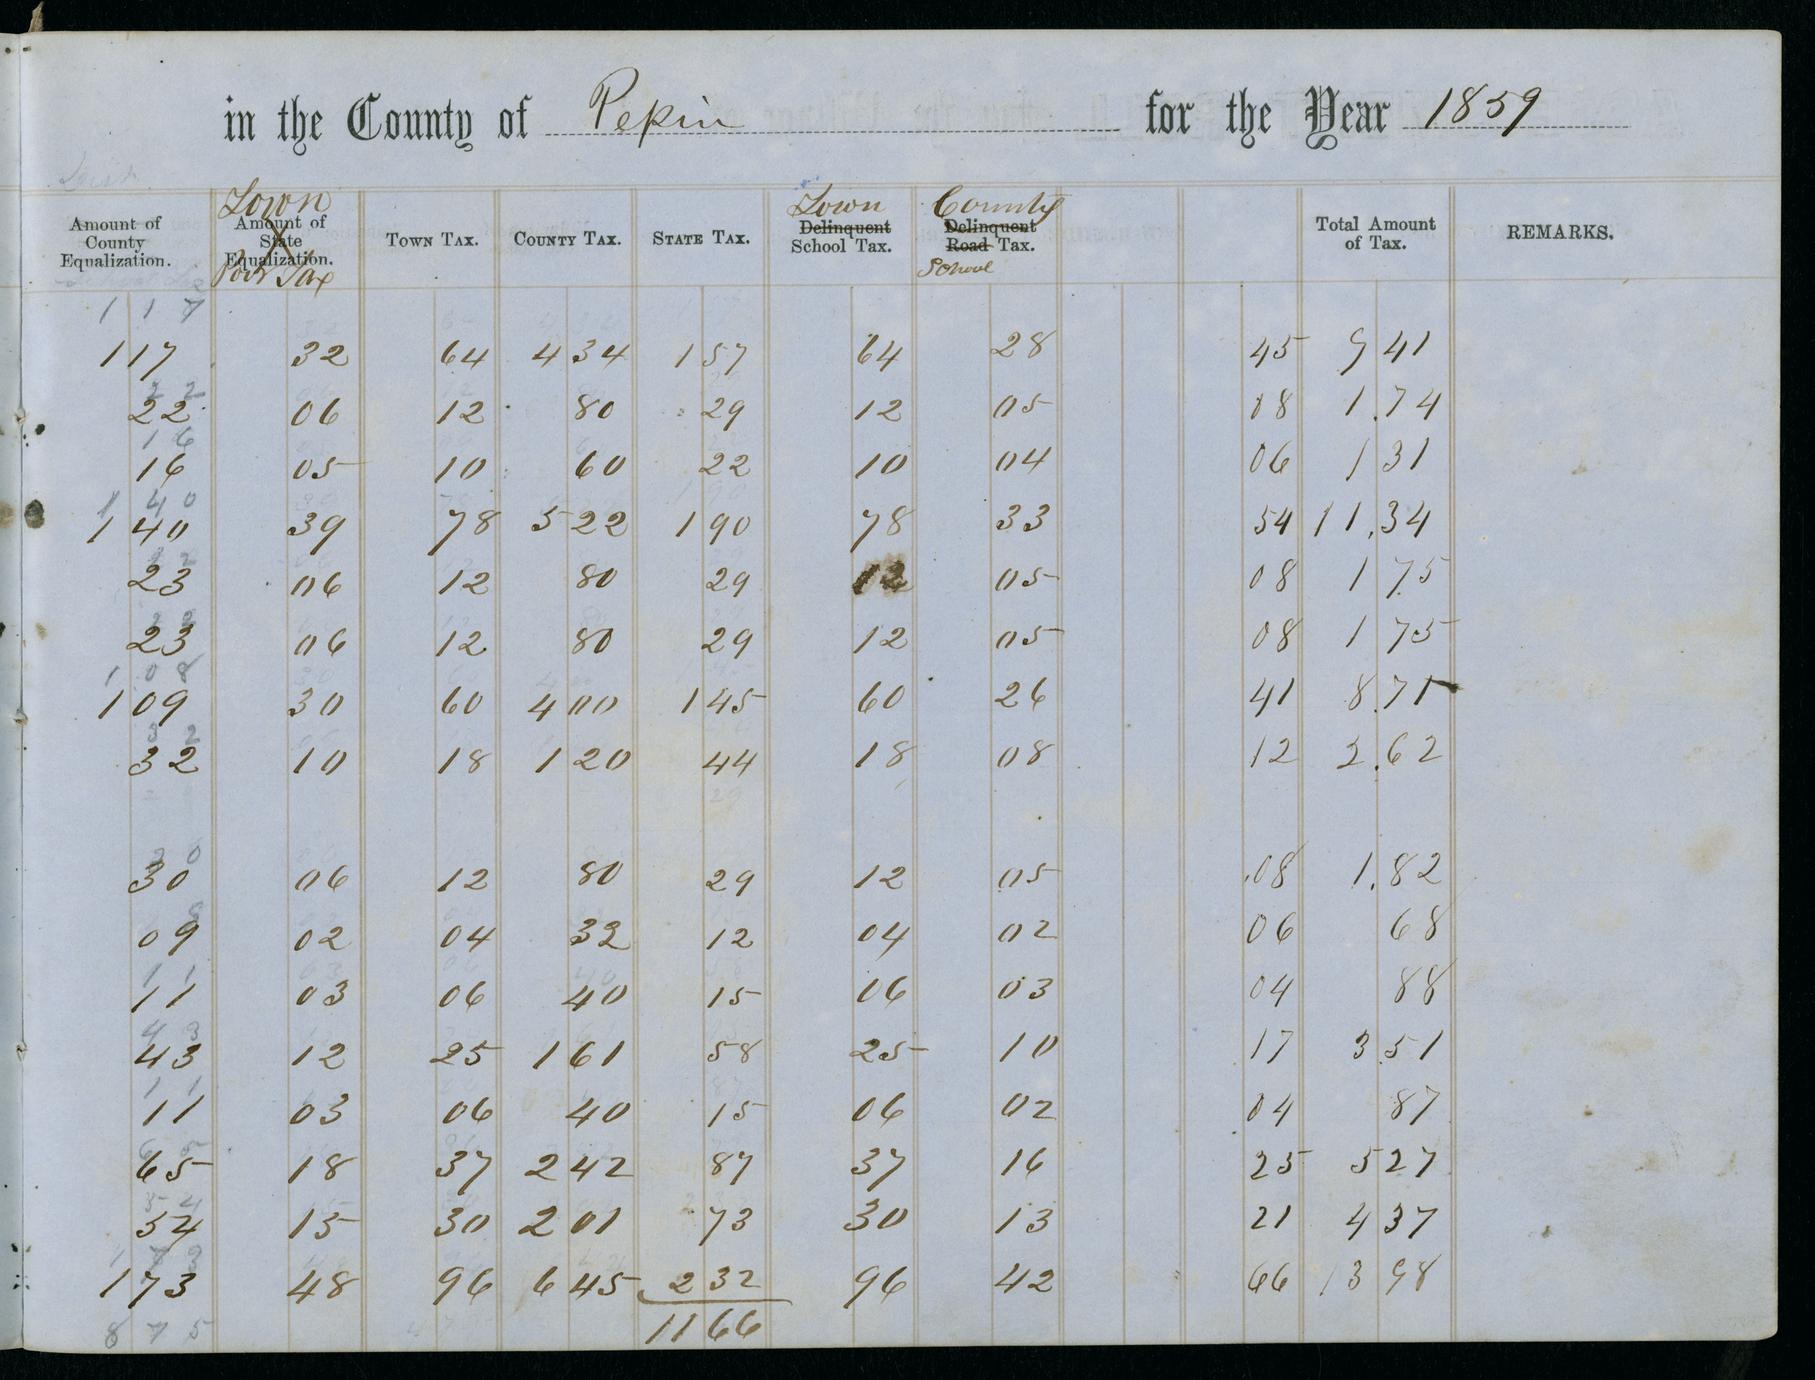 in the County of Pepin for the Year 1859
Amount of County Equalization. Town Amount of State Equalization. Poor Tax TOWN TAX. COUNTY TAX. STATE TAX. Town Delinquent School Tax. County Delinquent Road Tax. School Total Amount of Tax. REMARKS.
1 1 7
117 32 64 4 34 1 57 64 28 45 9 41
2 2
22 06 12 80 29 12 05 08 1.74
1 6
16 05 10 60 22 10 04 06 1 31
1 4 0
1 40 39 78 5 22 1 90 78 33 54 11.34
23 06 12 80 29 12 05 08 1 75
23 06 12 80 29 12 05 08 1 75
1 0 8
1 09 30 60 4 00 1 45 60 26 41 8.71
3 2
32 10 18 1 20 44 18 08 12 2.62
2 0
30 06 12 80 29 12 05 .08 1.82
09 02 04 32 12 04 02 06 68
1 1
11 03 06 40 15 06 03 04 88
4 3
43 12 25 1 61 58 25 10 17 3 51
1 1
11 03 06 40 15 06 02 04 87
65 18 37 2 42 87 37 16 25 5 27
5 4
54 15 30 2 01 73 30 13 21 4 37
1 73 48 96 6 45 2 32 96 42 66 13 98
8 7 5 11 66